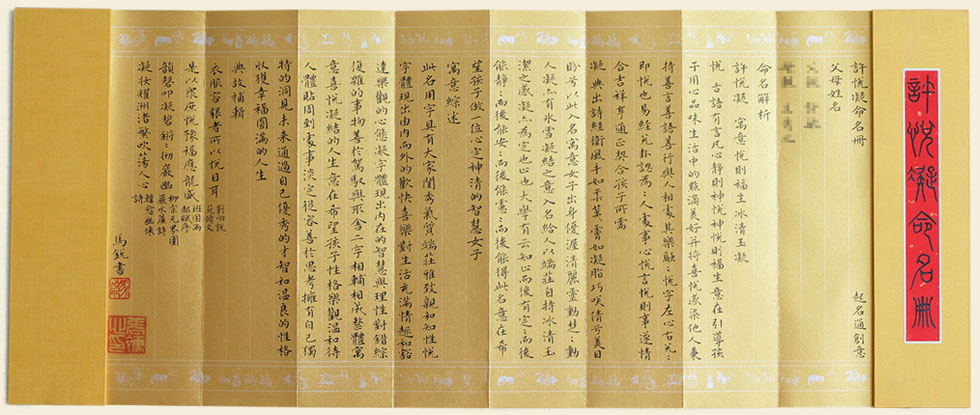 許悅凝命名冊
許悅凝命名冊 起名通創意
父母姓名
命名解析
許悅凝 寓意悅則福生冰清玉凝
悅 古語有言凡心靜則神悅神悅則福生意在引導孩
子用心品味生活中的點滿美好并將喜悅感染他人秉
持善言善語善行與人相處其樂融融悅字左心右兌兌
即悅也易經兌卦認為人處事心悅言悅則事遂情
合吉祥亨通正契合孩子所需
凝 典出詩經衛風手如柔荑膚如凝脂巧笑倩兮美目
盼兮以此入名寓意女子出身優渥清麗靈動慧動
人凝亦有冰雪凝結之意入名給人以端莊自持冰清玉
潔之感凝亦為定也正也大學有云知止而後有定定而後
能靜靜而後能安安而後能慮慮而後能得此名意在希
望孩子做一位心定神清的智慧女子
寓意綜述
此名用字具有大家閨秀氣質端莊雅致親和知性悅
字體現由內而外的歡快喜樂對生活充滿情趣和豁
達樂觀的心態凝字體現出內在的智慧與理性對錯綜
復雜的事物善於駕馭與取舍二字相輔相成整體寓
意喜悅凝結的人生意在希望孩子性格樂觀溫和待
人體貼周到處事淡定從容善於思考擁有自己獨
特的洞見未來通過自己優秀的才智和溫良的性格
收獲幸福圓滿的人生
典故補輯
衣服容貌者所以悅目耳 劉向說苑
是以眾庶悅豫福應尤盛 班固兩都賦序
韻磬叩凝碧鏘鏘徹巖幽 柳宗元界圍巖水簾詩
凝妝耀洲渚繁吹蕩人心 韓愈
詩
馬銳書